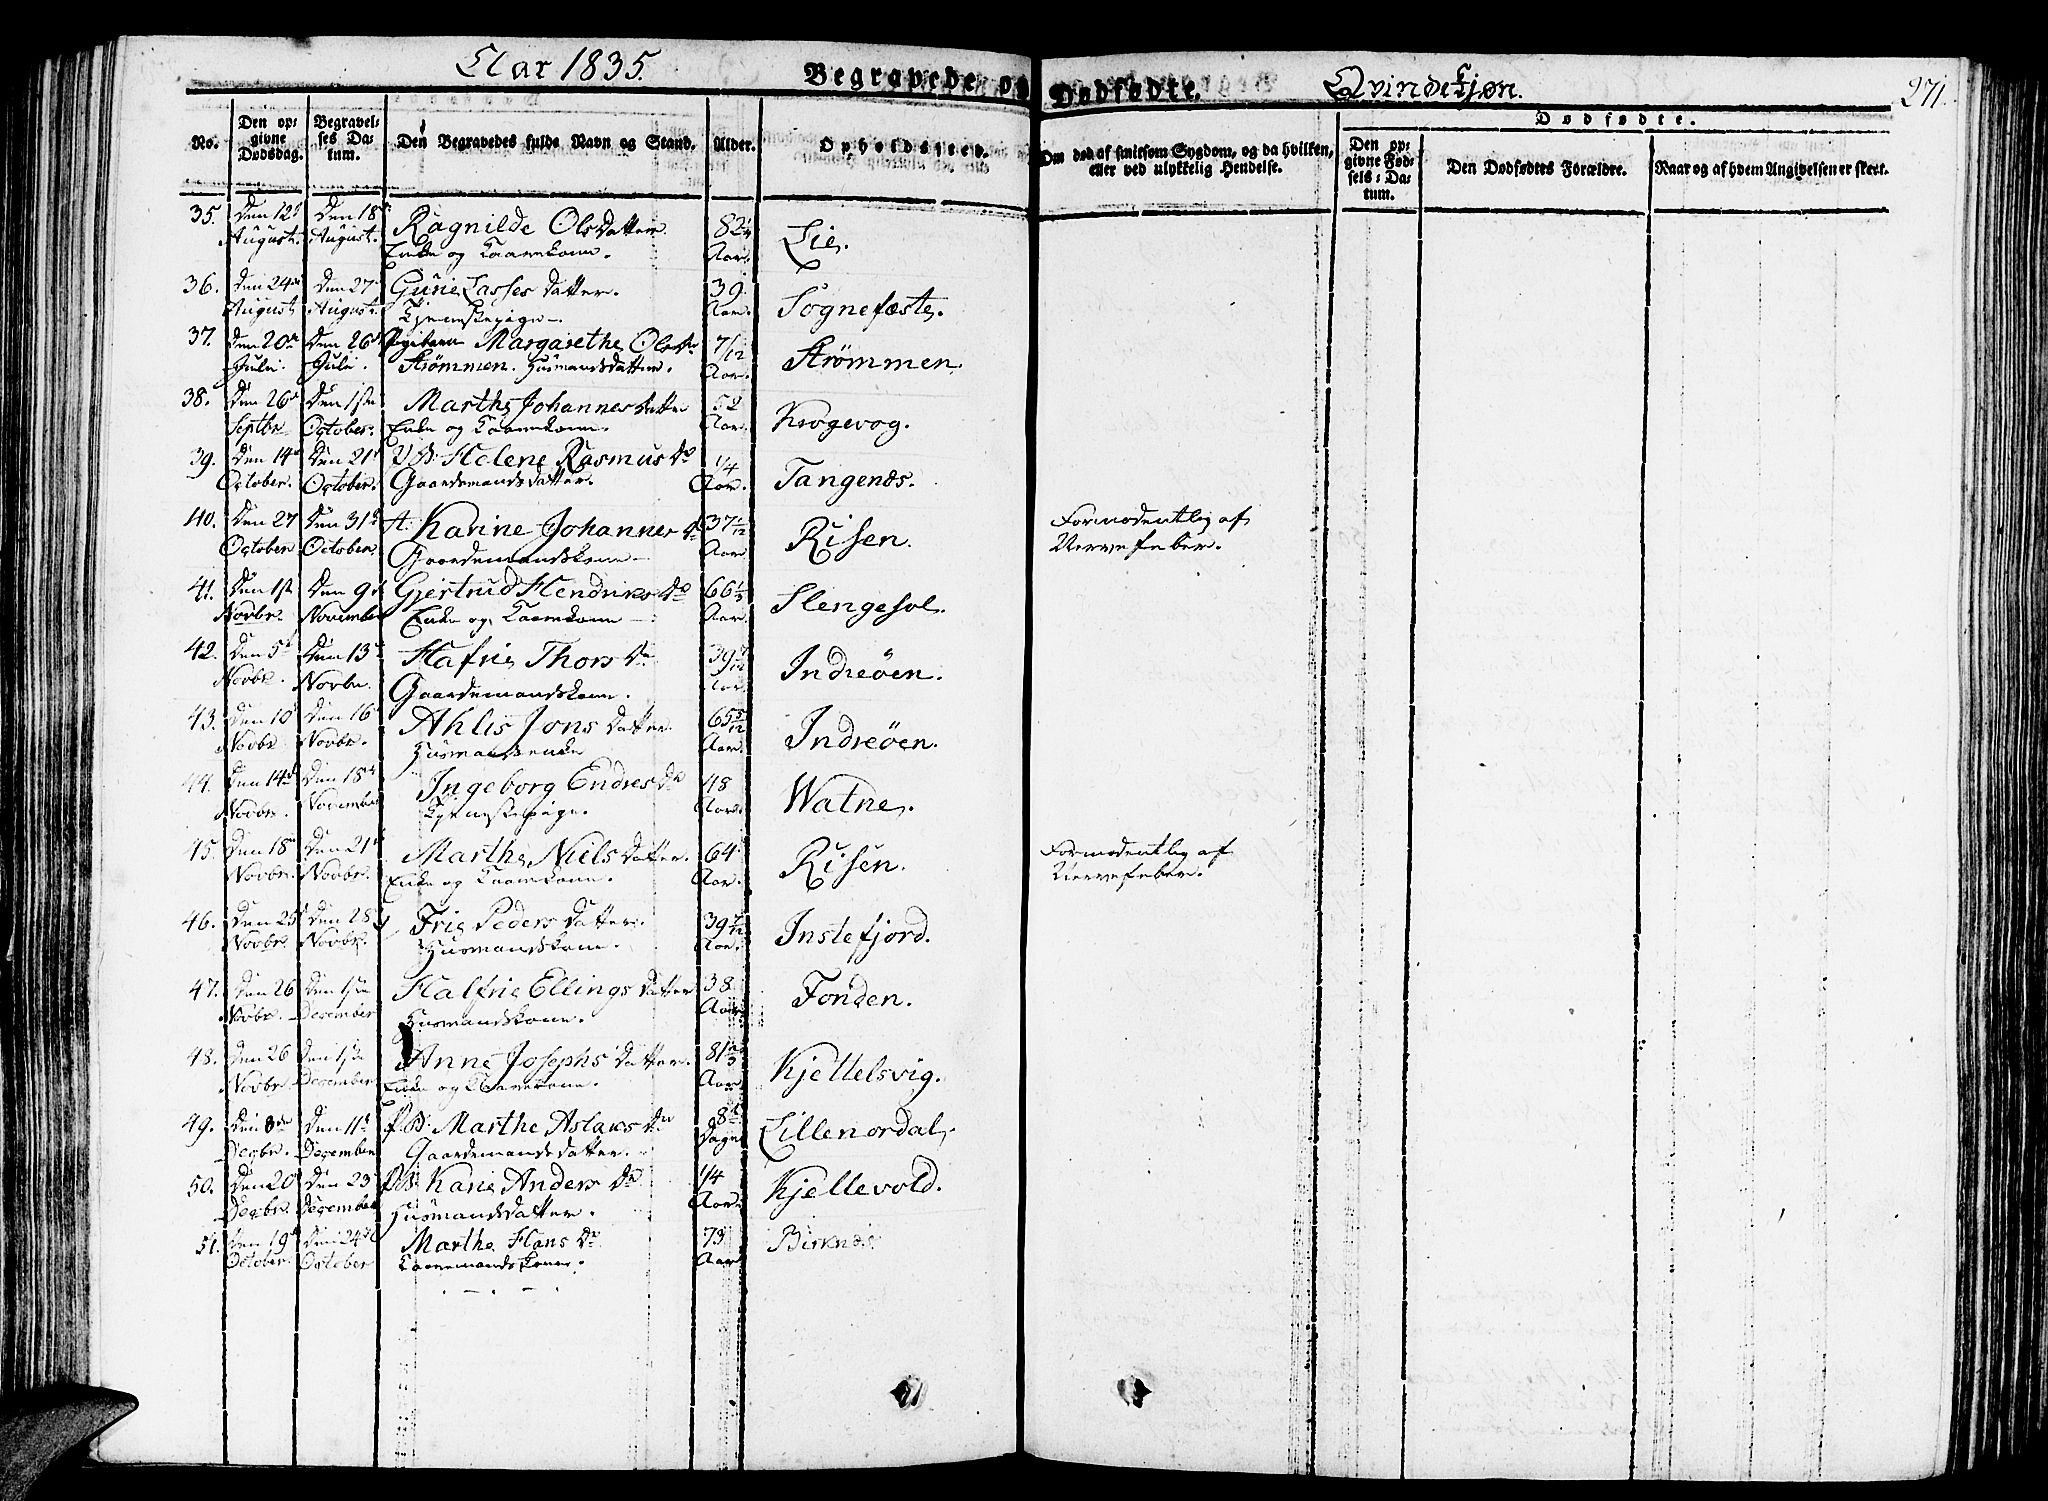 Aar 1835.
Begravede og Dødfødte.
Qvindekjøn.
271.
No.
Den opgivne Dødsdag.
Begravelses Datum.
Den Begravedes fulde Navn og Stand.
Alder.
Opholdssted.
Om død af smitsom Sygdom, og da hvilken, eller ved ulykkelig Hendelse.
Dødfødte.
Den opgivne Fødsels-Datum.
Den Dødfødtes Forældre.
Naar og af hvem Angivelsen er skeet.
35. Den 12te Den 18de Ragnilde Olsdatter. 82 Lie.
August. August. Enke og Kaarekone. Aar.
36. Den 24de Den 27de Gurie Lassesdatter. 39. Sognefæste.
August August. Tjenestepige. Aar.
37. Den 20de Den 26de Pigebarn Margarethe Olsdr 7/12 Strømmen.
Juli. Juli. Strømmen. Husmandsdatter. Aar.
38. Den 26de Den 1ste Marthe Johannesdatter 52 Krogevog.
Septbr. October. Enke og Kaarekone. Aar.
39. Den 14de Den 21de Helene Rasmus Dr 1/4 Tangenæs.
October. October. Gaardemandsdatter. Aar.
40. Den 27 Den 31te Karine Johannes Dr 37 1/12 Risen. Formodentlig af
October October. Gaardemandskone Aar Nervefeber.
41. Den 1ste Den 9de Gjertrud Hendriks Dr 66 1/3 Slengesol.
Novbr. November Enke og Kaarekone Aar.
42. Den 5te Den 13de Hafrie Thors Dr 39 Indreøen.
Novbr. Novbr. Gaardemandskone. Aar.
43. Den 10de Den 16de Ahlis Jonsdatter. 65 5/12 Indreøen.
Novbr. Novbr. Husmandsenke Aar.
44. Den 14de Den 18de Ingeborg Endres Dr 48 Watne.
Novbr. November Tjenestepige. Aar.
45. Den 18de Den 21de Marthe Nielsdatter. 64 Risen. Formodentlig af
Novbr. Novbr. Enke og Kaarekone. Aar. Nervefeber.
46. Den 25de Den 28de Frie Pedersdatter. 39 Instefjord.
Novbr. Novbr. Husmandskone. Aar.
47. Den 26 Den 1ste Halfrie Ellingsdatter 38. Fonden.
Novbr. December Husmandskone. Aar
48. Den 26 Den 1ste Anne Josephsdatter. 81 2/3 Kjettelsvig.
Novbr December Enke og Kaarekone. Aar.
49. Den 8de Den 11te Marthe Aslaks Dr 8 Lillenordal.
Decbr. December Gaardemandsdatter. Dage
50. Den 20de Den 23de Karie Anders Dr 1/4 Kjellevold.
Decbr. December Husmandsdatter. Aar.
51. Den 19de Den 24de Marthe Hans Dr 73 Birknæs.
October. October Kaaremandskone. Aar